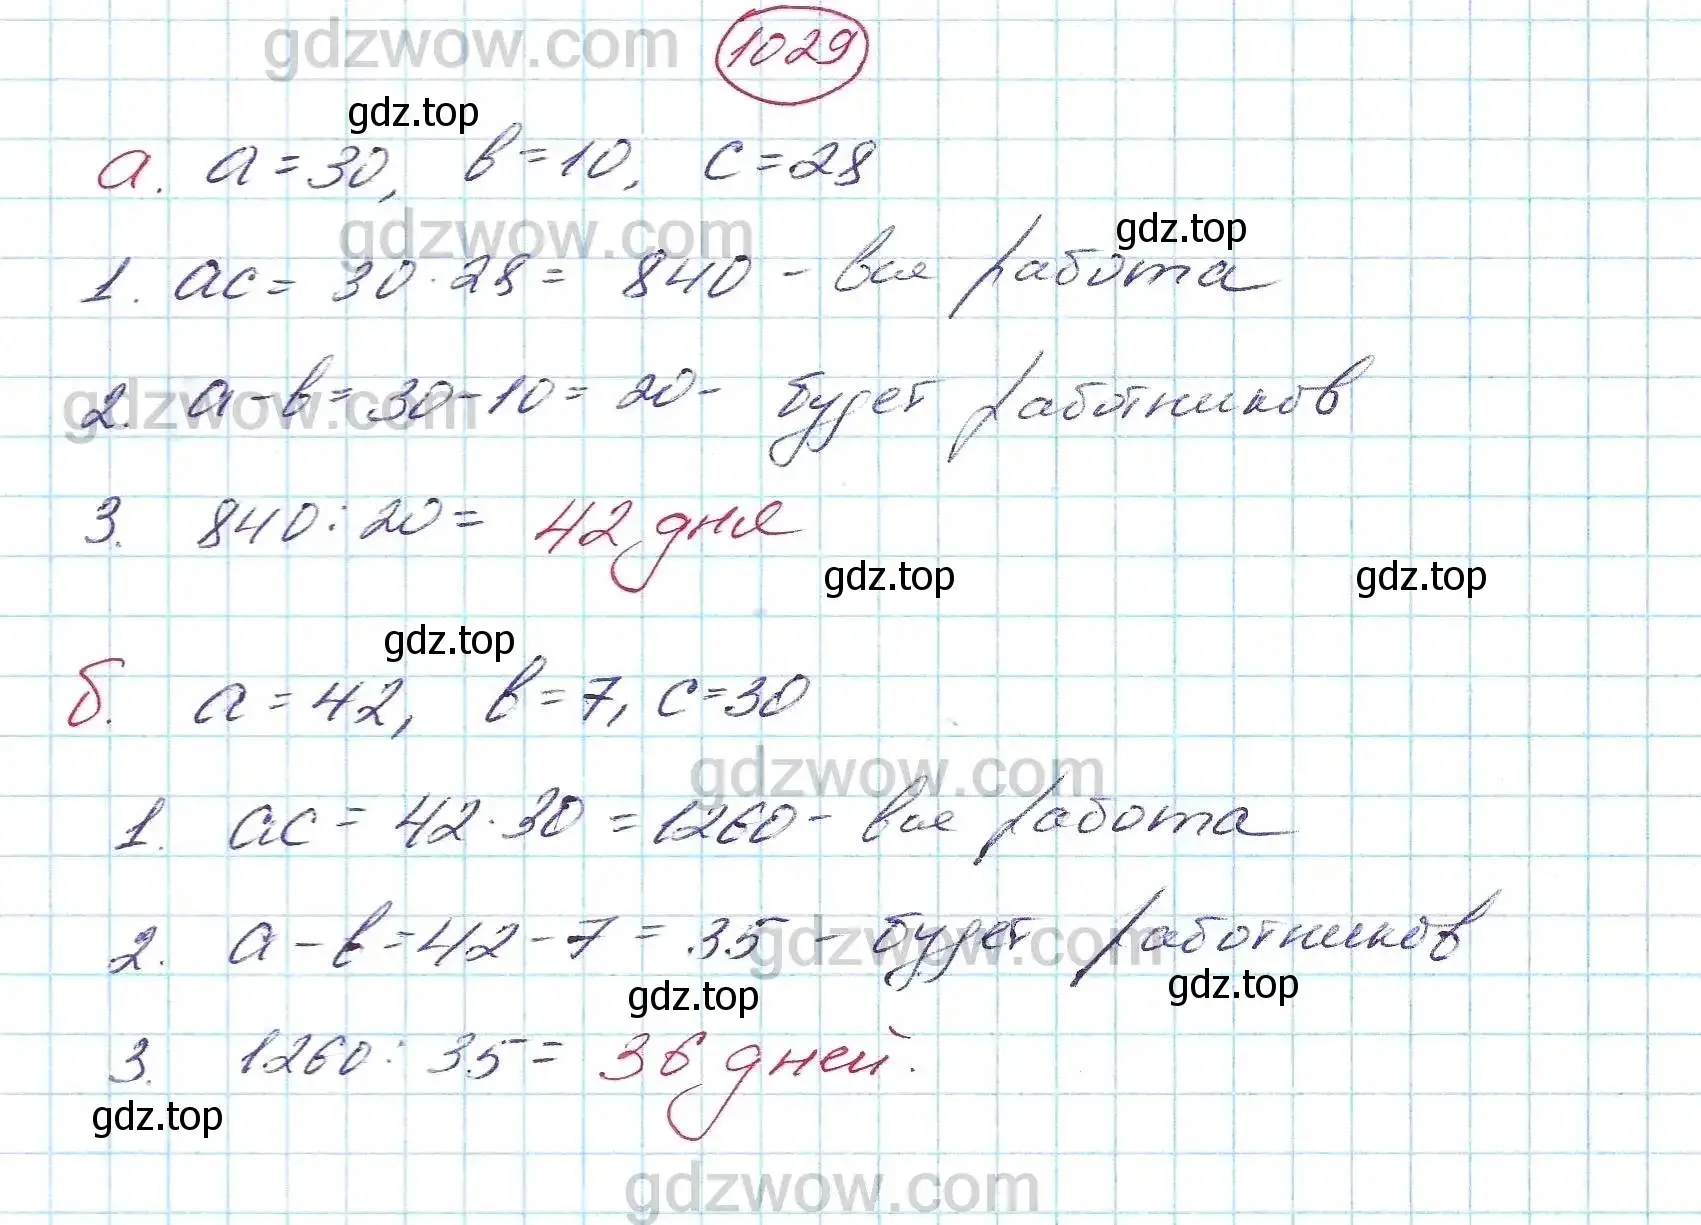 gdzwow.com
1029
gdz.top
а. a = 30, b = 10, c = 28
gdzwow.com
gdz.top
1. ac = 30 · 28 = 840 - вся работа
gdzwow.com
2. a - b = 30 - 10 = 20 - будет работников
3. 840 : 20 = 42 дня
gdz.top
gdz.top
gdz.top
б. a = 42, b = 7, c = 30
gdzwow.com
1. ac = 42 · 30 = 1260 - вся работа
gdzwow.com
2. a - b = 42 - 7 = 35 - будет работников
gdz.top
gdz.top
3. 1260 : 35 = 36 дней.
gdz.top
gdzwow.com